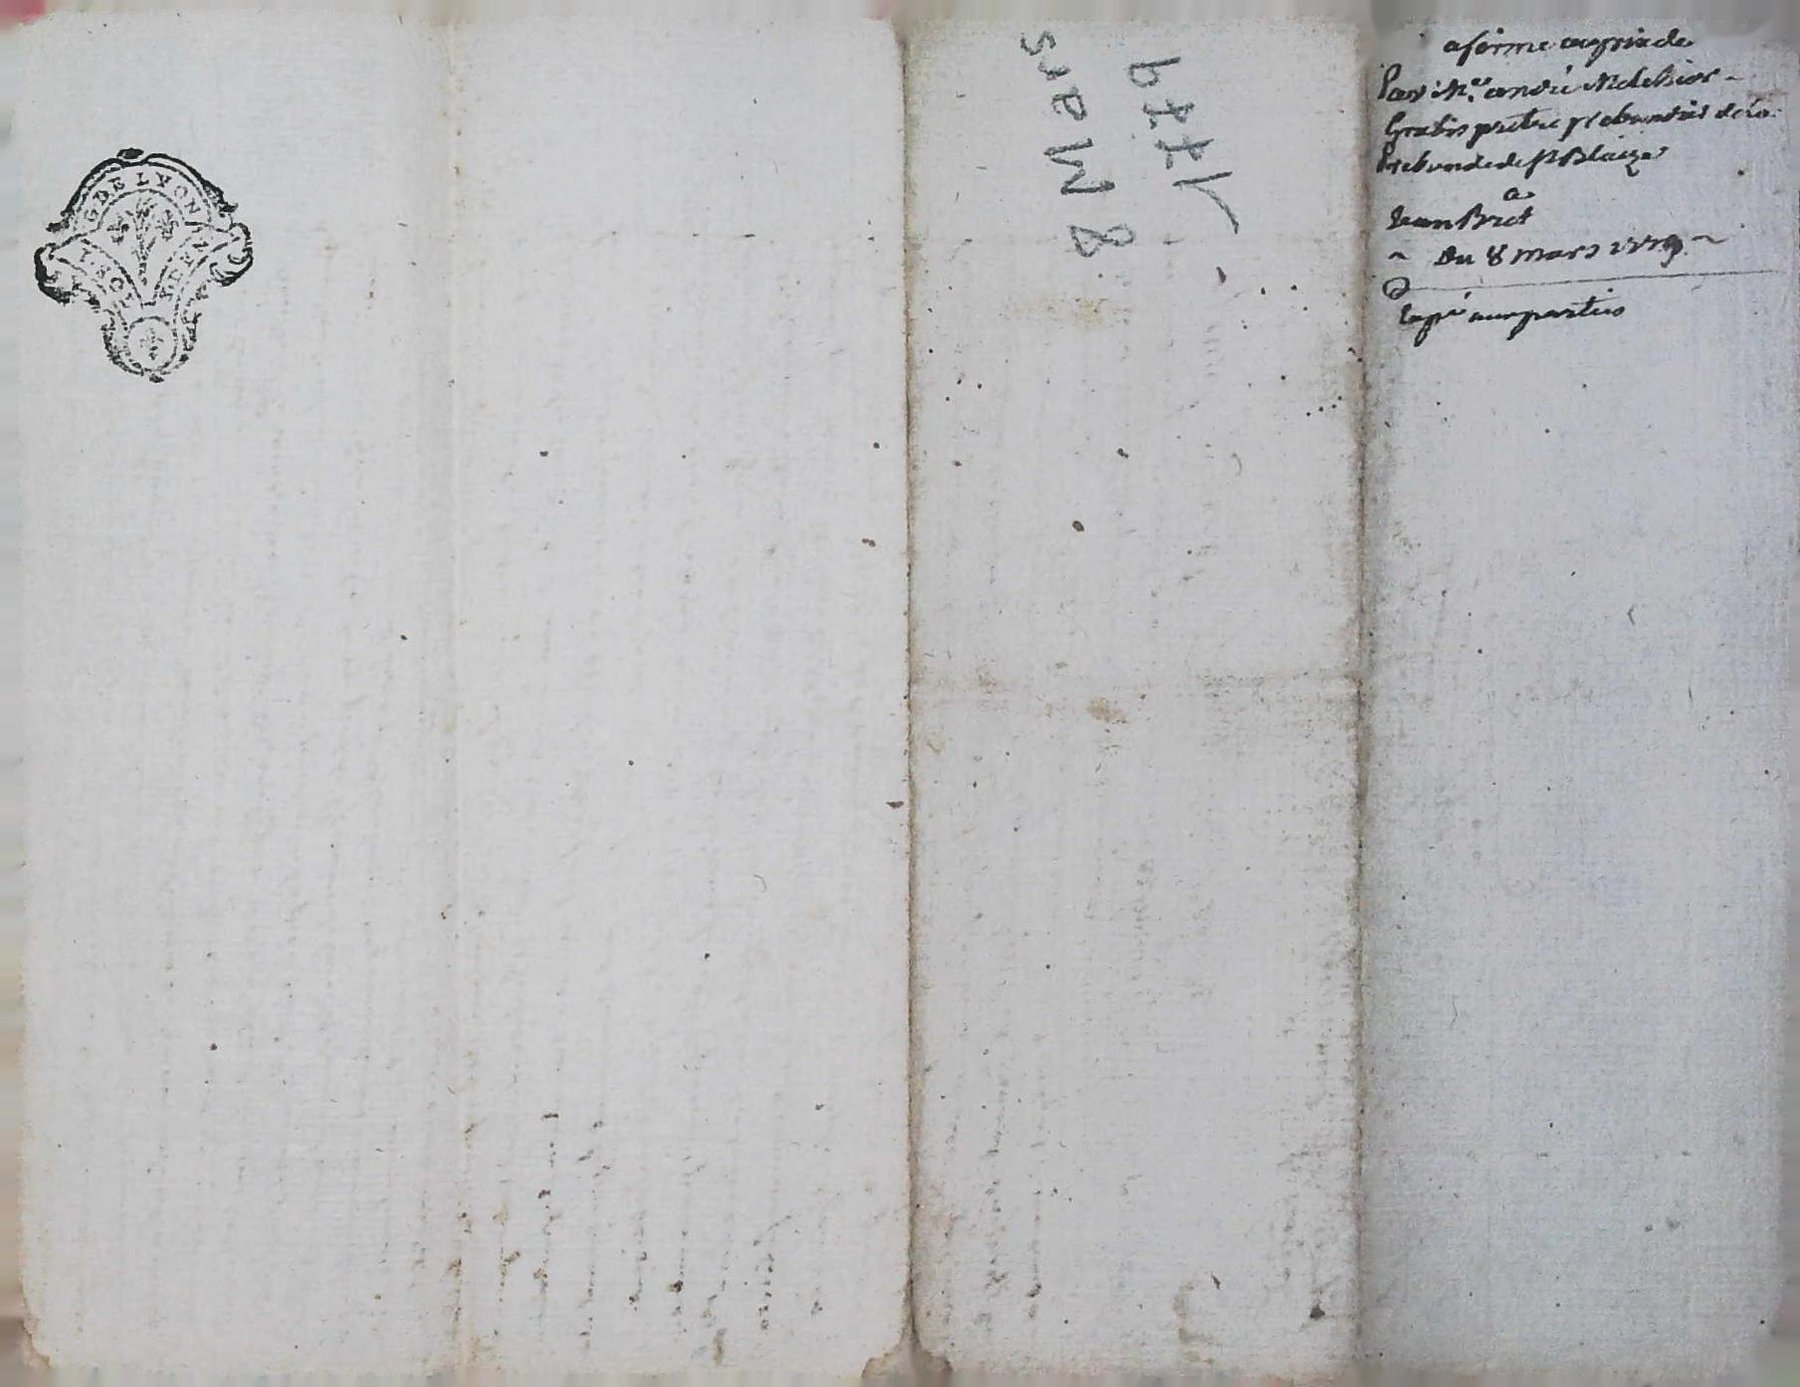 G DE LYON
8 Mars
1779
aferme
Par Mre andré Melchior
Gratis prêtre prebandier de la
Prebande de St Blaize
a
Jean Bret
~ Du 8 mars 1779 ~
Expé aux parties